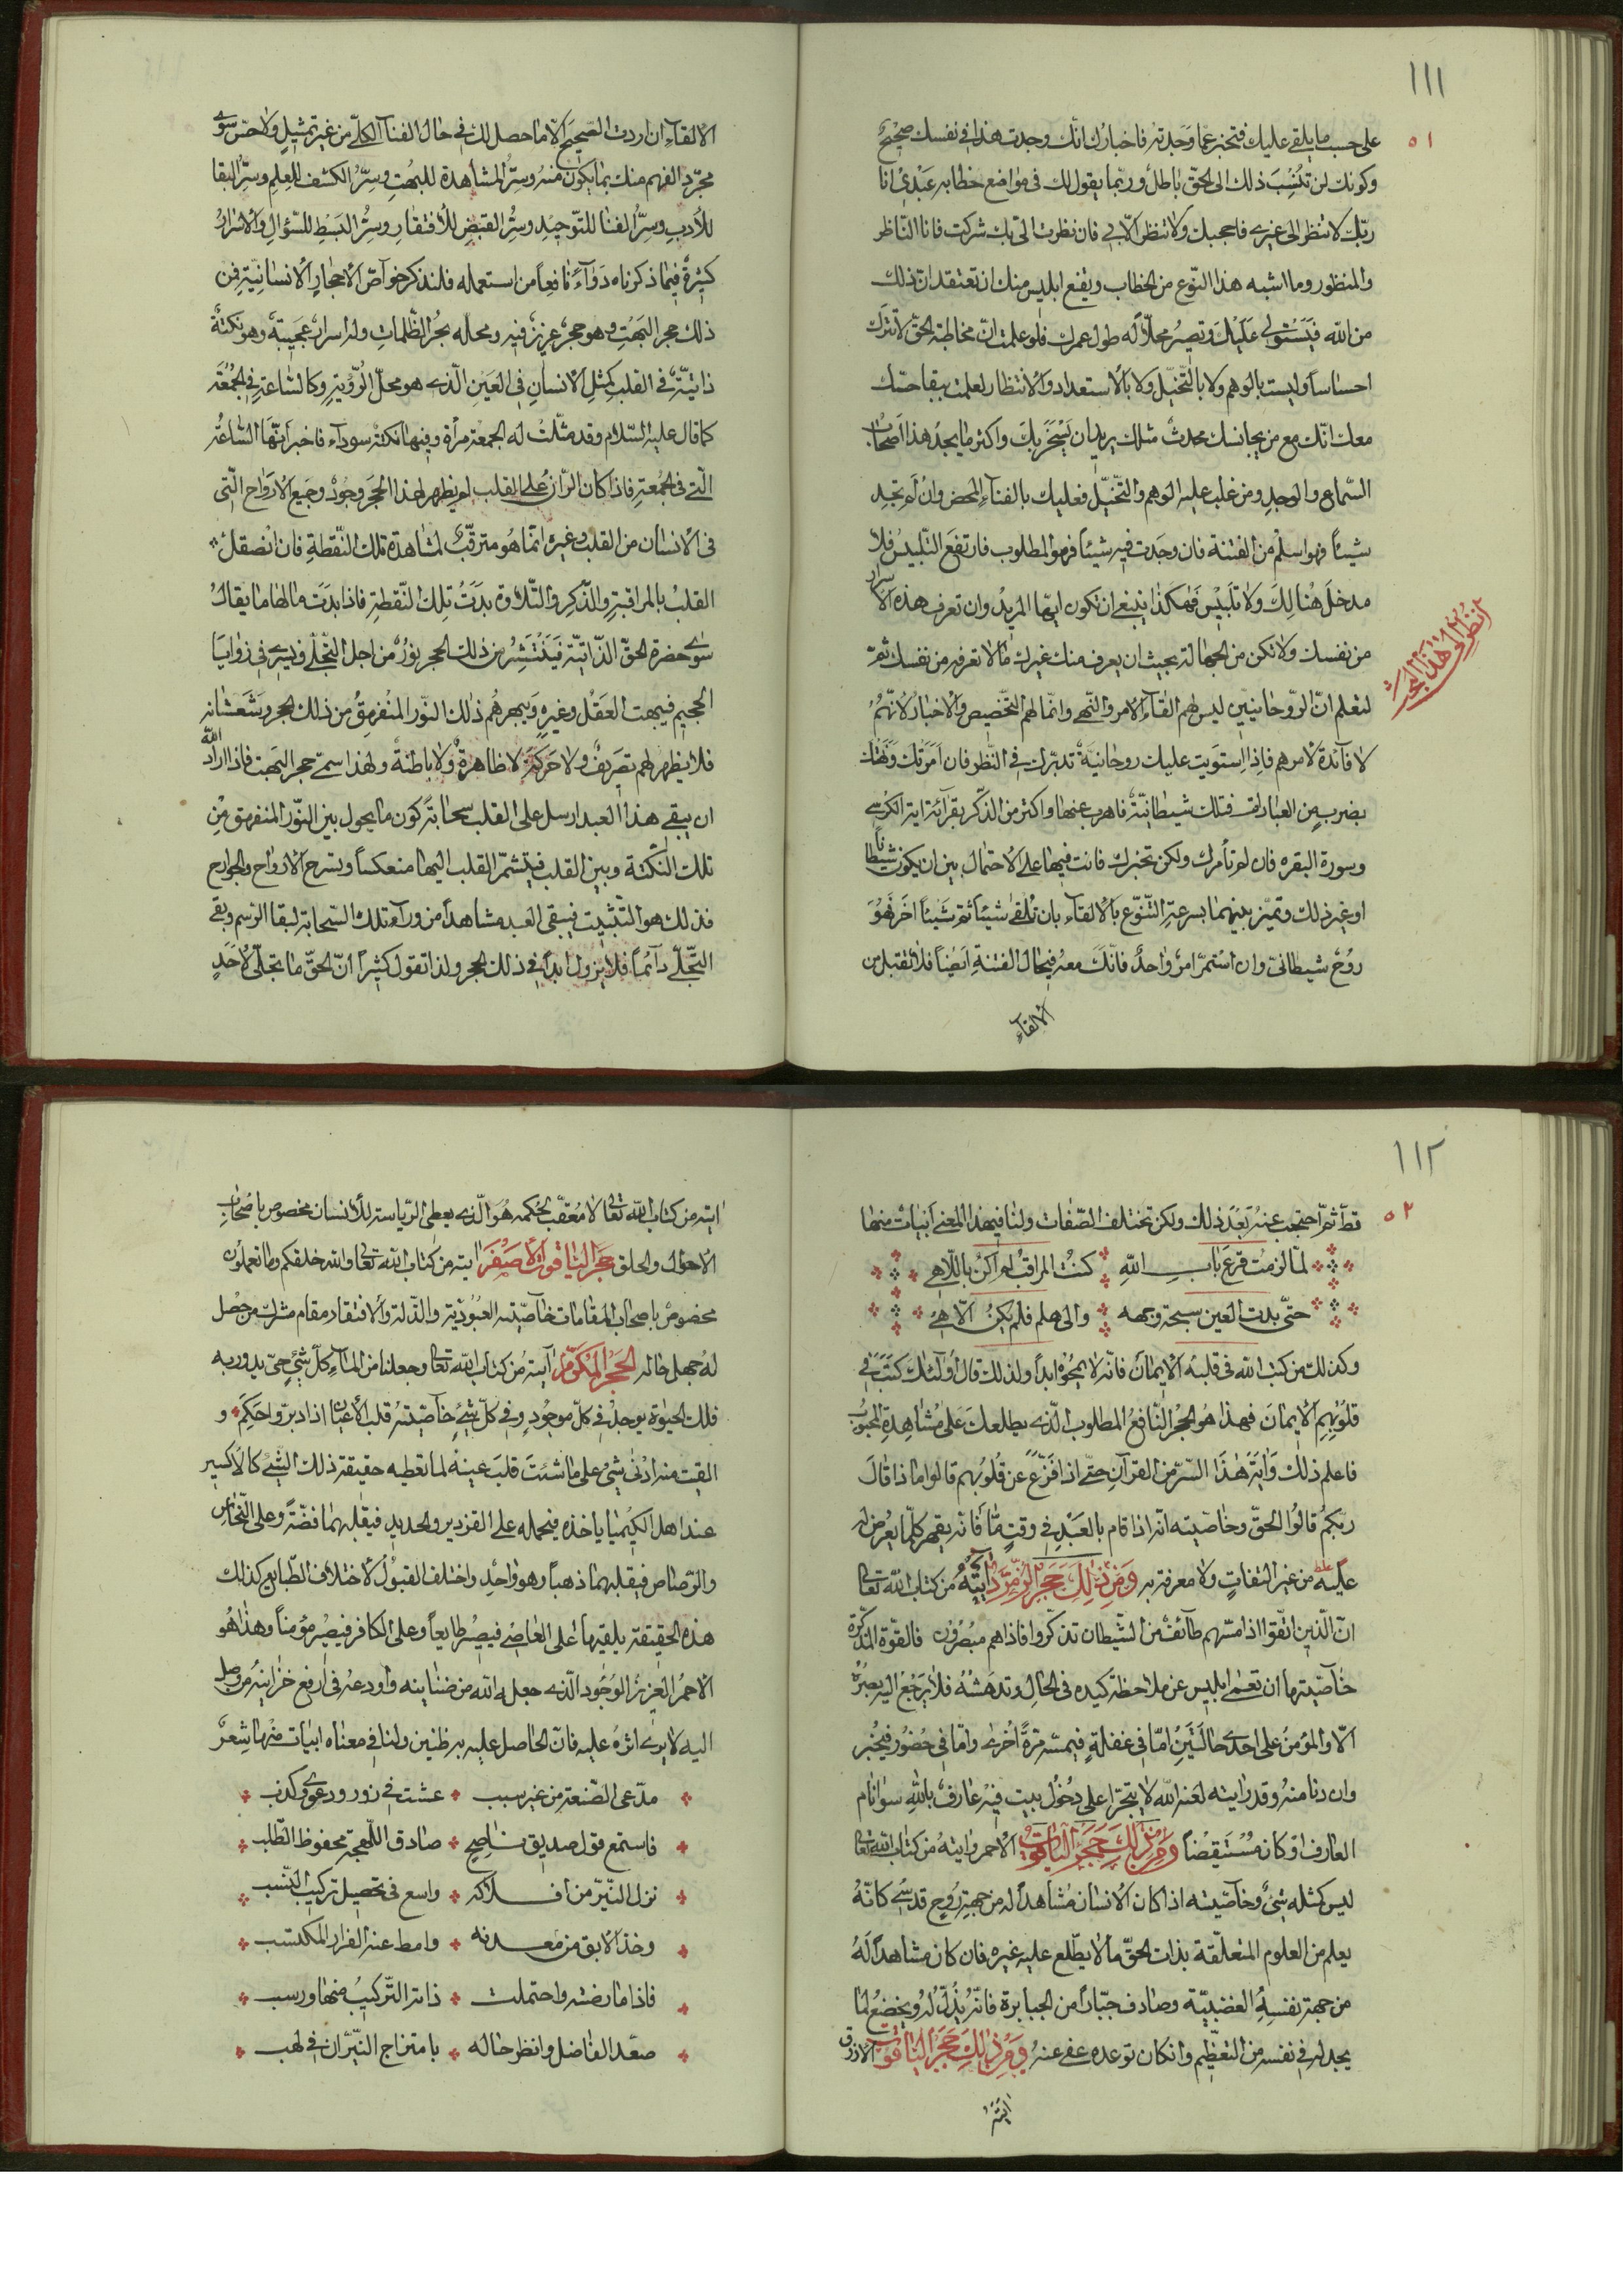 ١١١
٥١
على حسب ما يلقى عليك فتخبر عما وجدته فاخبارك انّك وجدت هذا في نفسك صحيح
وكونك لن تنسب ذلك الى الحق باطل وربّما يقول لك فى مواضع خطابه عبدي انا
ربّك لا تنظر الى غيري فاحجبك ولا تنظر الّا بي فان نظرت الىّ بك شركت فانا النّاظر
والمنظور وما اشبه هذا النّوع من الخطاب ويقنع ابليس منك ان تعتقد ان ذلك
من الله فيستولى عليك وتصير محلّا له طول عمرك فلو علمت انّ مخاطبة الحقّ لا تترك
احساسا وليست بالوهم ولا بالتّخيّل ولا بالاستعداد والانتظار لعلمت ببقا حسّك
معك انّك مع من يجانسك محدث مثلك يريد ان يسخر بك واكثر ما يجد هذا اصحاب
السّماع والوجد ومن غلب عليه الوهم والتّخيّل فعليك بالفنآء المحض وان لم تجد
شيئاً فهو اسلم من الفتنة فان وجدت فيه شيئاً فهو المطلوب فارتفع التّلبيس فلا
مدخل هنالك ولا تلبيس فهكذا ينبغي ان تكون ايّها المريد وان تعرف هذه الاسرار
انظر الى هذا البحث
من نفسك ولا تكن من الجهالة بحيث ان يعرف منك غيرك ما لا تعرفه من نفسك ثمّ
لتعلم انّ الرّوحانيّين ليس لهم القآء الامر والنّهي وانّما لهم التّخصيص والاخبار لانّهم
لا فآئدة لامرهم فاذا استويت عليك روحانيّة تدبّرك في النّظر فان امرتك ونهتك
بضرب من العبادات فتلك شيطانيّة فاهرب عنها واكثر من الذّكر بقرآئة اية الكرسي
وسورة البقره فان لم تأمرك ولكن تخبرك فانت فيها على الاحتمال بين ان يكون شيطانا
او غير ذلك وتميّز بينهما بسرعة التّنوّع بالالقآء بان تلقى شيئاً ثمّ شيئاً اخر فهو
روح شيطانىّ وان استمرّ امر واحد فانّك معه في حال الفتنة ايضاً فلا تقبل من
الالقآء
الالقآء ان اردت الصّحيح الّا ما حصل لك في حال الفنآ الكلّي من غير تمثيل ولا حسّ سوى
مجرّد الفهم منك بما يكون منه وسرّ المشاهدة للبهت وسرّ الكشف للعلم وسرّ البقا
للأدب وسرّ الفنا للتّوحيد وسرّ القبض للأفتقار وسرّ البسط للسّؤال والاسرار
كثيرة فيما ذكرناه دوآء نافعاً من استعمله فلنذكر خوآصّ الأحجار الأنسانيّة فمن
ذلك حجر البهت وهو حجر عزيز فيه ومحلّه بحر الظّلمات وله اسرار عجيبة وهو نكتة
ذاتيّة في القلب كمثل الأنسان في العين الّذي هو محلّ الرّؤية وكالسّاعة في الجمعة
كما قال عليه السّلام وقد مثّلت له الجمعة مرأة وفيها نكتة سودآء فاخبر انّها السّاعة
الّتي في الجمعة فاذا كان الرّان على القلب لم يظهر لهذا الحجر وجود وجميع الارواح الّتي
في الأنسان من القلب وغيره انّما هو مترقّب لمشاهدة تلك النّقطة فان انصقل
القلب بالمراقبة والذّكر والتّلاوة بدت تلك النّقطة فاذا بدت مالها ما يقابل
سوى حضرة الحقّ الذّاتيّة فينتشر من ذلك الحجر نور من اجل التّجلّي ويسري في زوايا
الجسم فيبهت العقل وغيره ويبهرهم ذلك النّور المنفرق من ذلك الحجر وشعشانه
فلا يظهر لهم تصريف ولا حركة لا ظاهرة ولا باطنة ولهذا سمّي حجر البهت فاذا اراد الله
ان يبقي هذا العبد ارسل على القلب سحابة كون ما يحول بين النّور المنفرق من
تلك النّكتة وبين القلب فيتشمّر القلب اليها منعكساً ويسرح الارواح والجوارح
فذلك هو التثبيت فيبقى العبد مشاهداً من ورآء تلك السّحابة لبقا الرّسم وبقي
التّجلّي دآئماً فلا يزول ابداً في ذلك الحجر ولذا تقول كثيراً انّ الحقّ ما تجلّى لأحد
١١٢
٥٢
قطّ ثمّ احتجب عنه بعد ذلك ولكن تختلف الصّفات ولنا في هذا المعنى ابيات منها
لمّا لزمت قرع باب الله كنت المراقب لم اكن باللّاهي
حتّى بدت للعين سبحة وجهه والى هلم فلم يكن الّا هي
وكذلك من كتب الله في قلبه الأيمان فانّه لا يمحوه ابداً ولذلك قال اولئك كتب في
قلوبهم الأيمان فهذا هو الحجر النّافع المطلوب الّذي يطلعك على مشاهدة المحبوب
فاعلم ذلك وآية هذا السّرّ من القرآن حتّى اذا فزّع عن قلوبهم قالوا ماذا قال
ربّكم قالوا الحقّ وخاصّيته انّه اذا قام بالعبد في وقت مّا فانّه يقهر كلّما يعرض له
عليه من غير التفات ولا معرفة به ومن ذلك حجر الزّمرّد آيته من كتاب الله تعالى
انّ الّذين اتّقوا اذا مسّهم طآئف من الشّيطان تذكّروا فاذا هم مبصرون فالقوّة المذكّرة
خآصّيتها ان تعمي ابليس عن ملاحظة كيده في الحال وتدهشه فلا يرجع اليه بصره
الّا والمؤمن على احدى حالتين امّا في غفلة فيمسّه مرّة أخرى وامّا في حضور فيخبر
وان دنا منه وقد رايته لعنه الله لا يتجرّا على دخول بيت فيه عارف بالله سوا نام
العارف او كان مستيقضاً ومن ذلك حجر الياقوت الأحمر وايته من كتاب الله تعالى
ليس كمثله شيء وخآصّيته اذا كان الأنسان مشاهداً له من جهة روح قدسي كانّه
يعلم من العلوم المتعلّقة بذات الحقّ ما لا يطّلع عليه غيره فان كان مشاهداً له
من جهة نفسه الغضبيّة وصادف جبّاراً من الجبابرة فانّه يذلّ له ويخضع لما
يجد له في نفسه من التّعظيم وان كان توعده عفي عنه ومن ذلك حجر الياقوت الازرق
ايته
ايته من كتاب الله تعالى لا معقّب لحكمه هو الّذي يعطي الرّياسة للأنسان مخصوص باصحاب
الأحوال والحلق حجر الياقوت الأصفر ايته من كتاب الله تعالى والله خلقكم وما تعملون
مخصوص باصحاب المقامات خآصّيته العبوديّة والذّلة والافتقار مقام مشترك من حصل
له جهل حاله الحجر المكرّم آيته من كتاب الله تعالى وجعلنا من المآء كلّ شيء حيّ يدور به
فلك الحيوة يوجد في كلّ موجود وفي كلّ شيء خآصّيته قلب الأعيان اذا دبر واحكم و
القيت منه ادنى شيء على ما شئت قلب عينه لما تعطيه حقيقة ذلك الشّيء كالأكسير
عند اهل الكيميا ياخذه فيحمله على القزدير والحديد فيقلبهما فضّة وعلى النّحاس
والرّصاص فيقلبهما ذهباً وهو واحد واختلف القبول لأختلاف الطّبايع كذلك
هذه الحقيقة يلقيها على العاصي فيصير طايعاً وعلى الكافر فيصير مؤمناً وهذا هو
الأحمر العزيز الوجود الّذي جعله الله من ضنائنه واودعه في ارفع خزاينه من وصل
اليه لا يرى اثره عليه فانّ الحاصل عليه به ظنين ولنا في معناه ابيات منها شعر
مدّعى الصّنعة من غير سبب عشت في زور ودعوى وكذب
فاستمع قول صديق ناصح صادق اللّهجة محفوظ الطّلب
نزل النّيّر من افلاكه واسع في تحصيل تركيب النّسب
وخذ الابق من معدنه وامط عنه الغرار المكتسب
فاذا مارضته واحتملت ذاته التّركيب منها ورسب
صعّد الفاضل وانظر حاله بامتزاج النّيّران في لهب